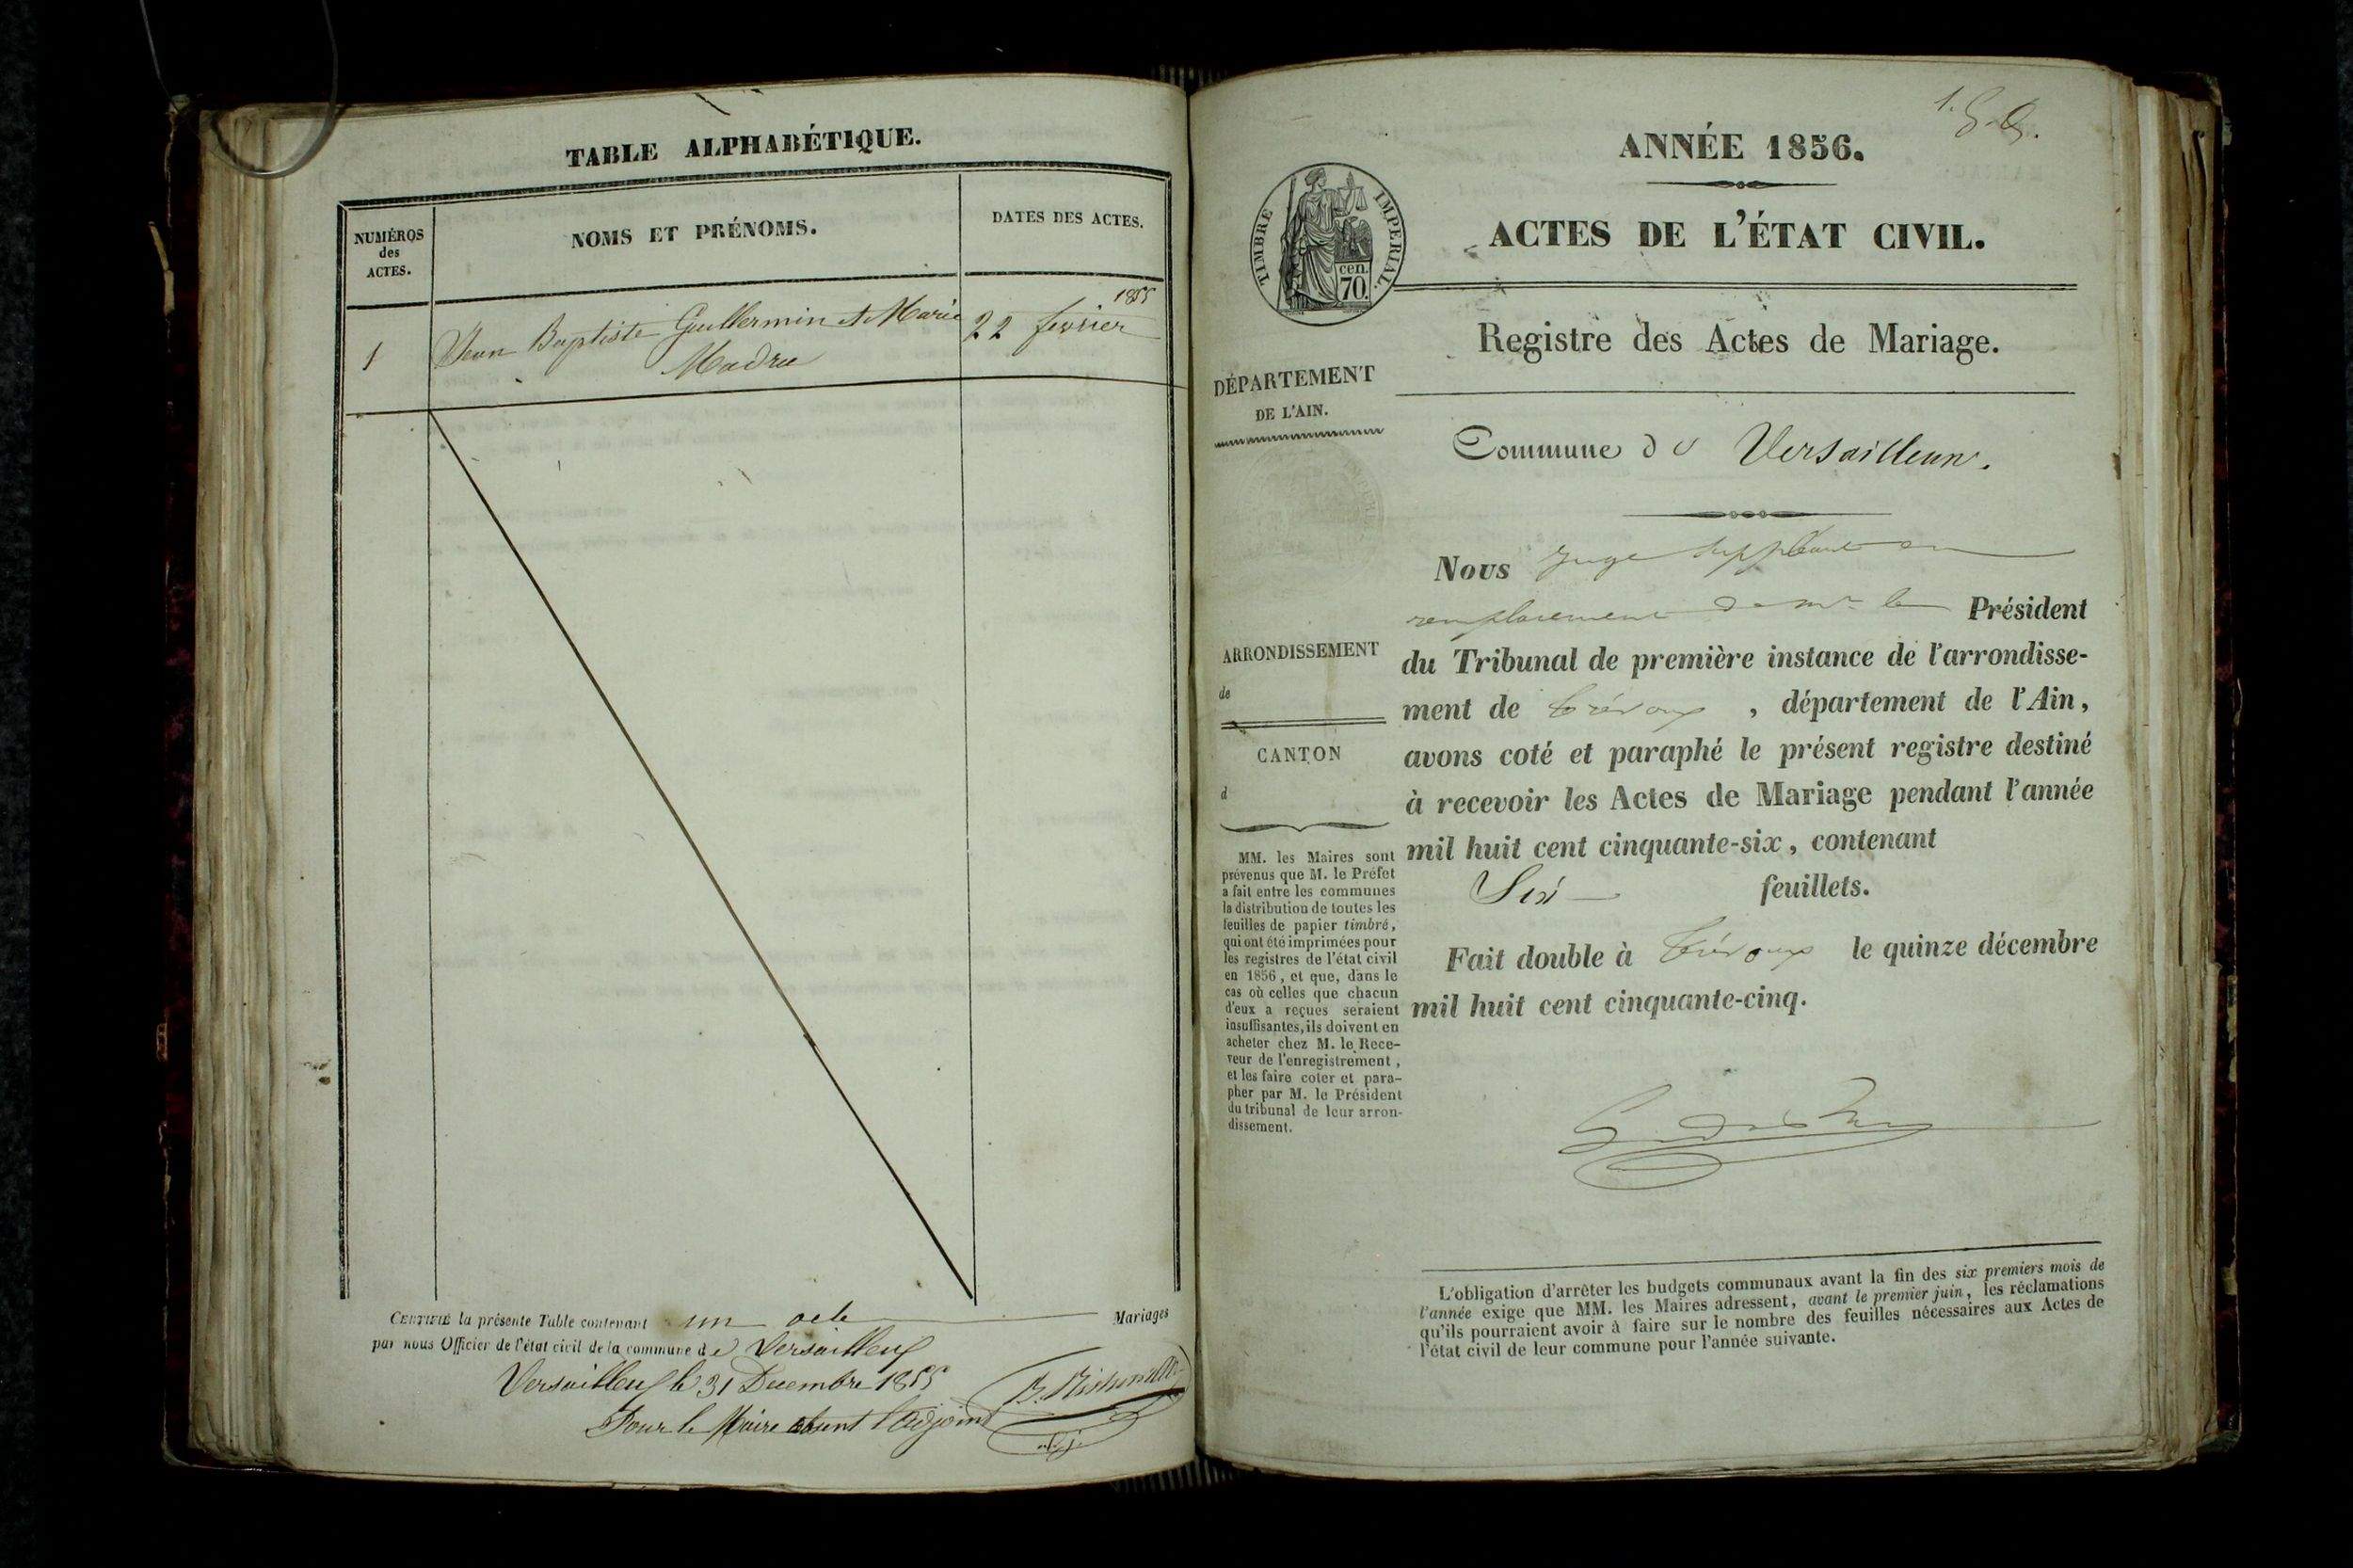 TABLE ALPHABÉTIQUE.
NUMÉROS
des
ACTES.
NOMS ET PRÉNOMS.
DATES DES ACTES.
1855
1
Jean Baptiste Guillermin et Marie
Madru
22 fevrier
CERTIFIÉ la présente Table contenant un acte Mariages
par nous Officier de l'état civil de la commune de Versailleux
Versailleux le 31 Decembre 1855
Pour le Maire absent l'adjoint
ANNÉE 1856.
ACTES DE L'ÉTAT CIVIL.
TIMBRE IMPERIAL.
cen.
70.
Registre des Actes de Mariage.
DÉPARTEMENT
DE L'AIN.
Commune de Versailleux.
Nous Juge suppléant en
remplacement de mr le Président
du Tribunal de première instance de l'arrondisse-
ment de Trévoux, département de l'Ain,
avons coté et paraphé le présent registre destiné
à recevoir les Actes de Mariage pendant l'année
mil huit cent cinquante-six, contenant
Six feuillets.
Fait double à Trévoux le quinze décembre
mil huit cent cinquante-cinq.
ARRONDISSEMENT
de
CANTON
d
MM. les Maires sont
prévenus que M. le Préfet
a fait entre les communes
la distribution de toutes les
feuilles de papier timbré,
qui ont été imprimées pour
les registres de l'état civil
en 1856, et que, dans le
cas où celles que chacun
d'eux a reçues seraient
insuffisantes, ils doivent en
acheter chez M. le Rece-
veur de l'enregistrement,
et les faire coter et para-
pher par M. le Président
du tribunal de leur arron-
dissement.
L'obligation d'arrêter les budgets communaux avant la fin des six premiers mois de
l'année exige que MM. les Maires adressent, avant le premier juin, les réclamations
qu'ils pourraient avoir à faire sur le nombre des feuilles nécessaires aux Actes de
l'état civil de leur commune pour l'année suivante.